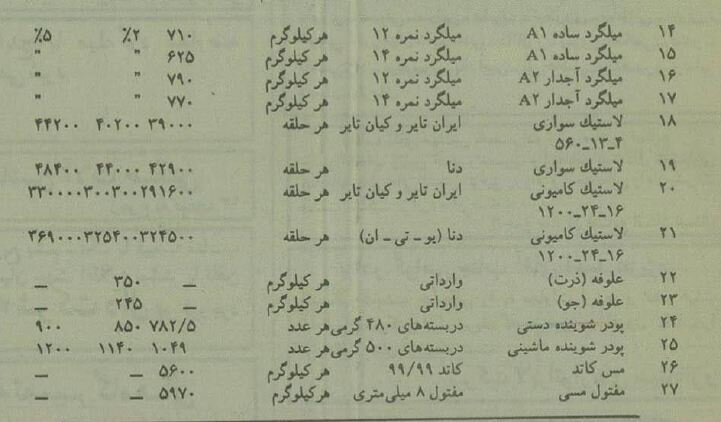 ۱۴ میلگرد ساده A۱ میلگرد نمره ۱۲ هرکیلوگرم ۷۱۰ ۲٪ ۵٪
۱۵ میلگرد ساده A۱ میلگرد نمره ۱۴ هرکیلوگرم ۶۲۵ " "
۱۶ میلگرد آجدار A۲ میلگرد نمره ۱۲ هر کیلوگرم ۷۹۰ " "
۱۷ میلگرد آجدار A۲ میلگرد نمره ۱۴ هر کیلوگرم ۷۷۰ " "
۱۸ لاستیك سواری ایران تایر و کیان تایر هر حلقه ۳۹۰۰۰ ۴۰۲۰۰ ۴۴۲۰۰
۵۶۰_۱۳_۴
۱۹ لاستیك سواری دنا هر حلقه ۴۲۹۰۰ ۴۴۰۰۰ ۴۸۴۰۰
۲۰ لاستیك کامیونی ایران تایر و کیان تایر هر حلقه ۲۹۱۶۰۰ ۳۰۰۳۰۰ ۳۳۰۰۰۰
۱۲۰۰_۲۴_۱۶
۲۱ لاستیك کامیونی دنا (یو ـ تی ـ ان) هر حلقه ۳۲۴۵۰۰ ۳۲۵۴۰۰ ۳۶۹۰۰۰
۱۲۰۰_۲۴_۱۶
۲۲ علوفه (ذرت) وارداتی هر کیلوگرم ـ ۳۵۰ ـ
۲۳ علوفه (جو) وارداتی هر کیلوگرم ـ ۲۴۵ ـ
۲۴ پودر شوینده دستی دربسته‌های ۴۸۰ گرمی هر عدد ۷۸۲/۵ ۸۵۰ ۹۰۰
۲۵ پودر شوینده ماشینی دربسته‌های ۵۰۰ گرمی هر عدد ۱۰۴۹ ۱۱۴۰ ۱۲۰۰
۲۶ مس کاتد کاتد ۹۹/۹۹ هر کیلوگرم ۵۶۰۰ ـ ـ
۲۷ مفتول مسی مفتول ۸ میلی‌متری هرکیلوگرم ۵۹۷۰ ـ ـ